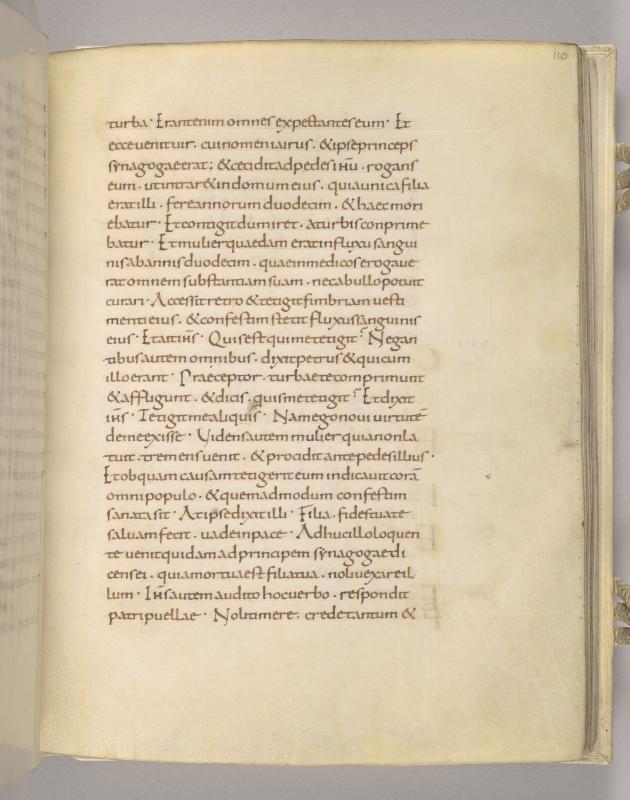 110
turba· Erantenim omnes expectantes eum· Et
ecce uenit uir· cui nomen iairus· & ipse princeps
synagogae erat; & cecidit ad pedes ihu· rogans
eum· ut intrar& in domum eius· quia unica filia
erat illi· fere annorum duodecim· & haec mori
ebatur· Et contigit dum iret· a turbis conprime
batur· Et mulier quaedam erat in fluxu sangui
nis ab annis duodecim· quae in medicos erogaue
rat omnem substantiam suam· nec ab ullo potuit
curari· Accessit retro & tetigit fimbriam uesti
menti eius· & confestim stetit fluxus sanguinis
eius· Et ait ihs· Quis est qui me tetigit? Negan
tibus autem omnibus· dixit petrus & qui cum
illo erant· Praeceptor· turbae te comprimunt
& affligunt· & dicis· quis me tetigit? Et dixit
ihs· Tetigit me aliquis· Nam ego noui uirtutē
de me exisse· Uidens autem mulier quia non la
tuit· tremens uenit· & procidit ante pedes illius·
Et ob quam causam tetigerit eum indicauit corā
omni populo· & quemadmodum confestim
sanata sit· At ipse dixit illi· Filia· fides tua te
saluam fecit· uade in pace· Adhuc illo loquen
te uenit quidam ad principem synagogae di
cens ei· quia mortua est filia tua· noli uexare il
lum· Ihs autem audito hoc uerbo· respondit
patri puellae· Noli timere· crede tantum &